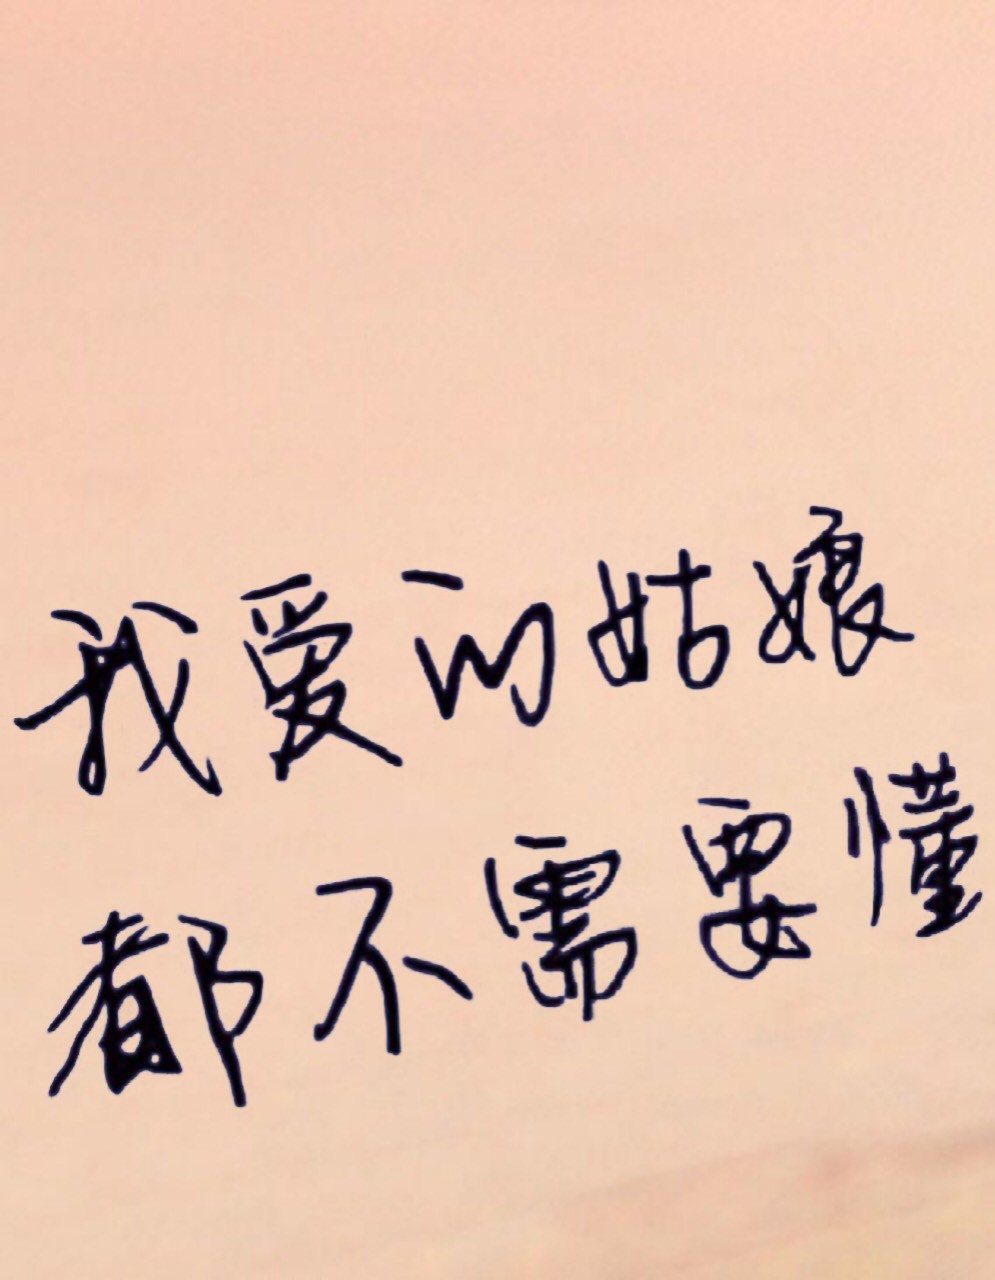 我爱的姑娘
都不需要懂